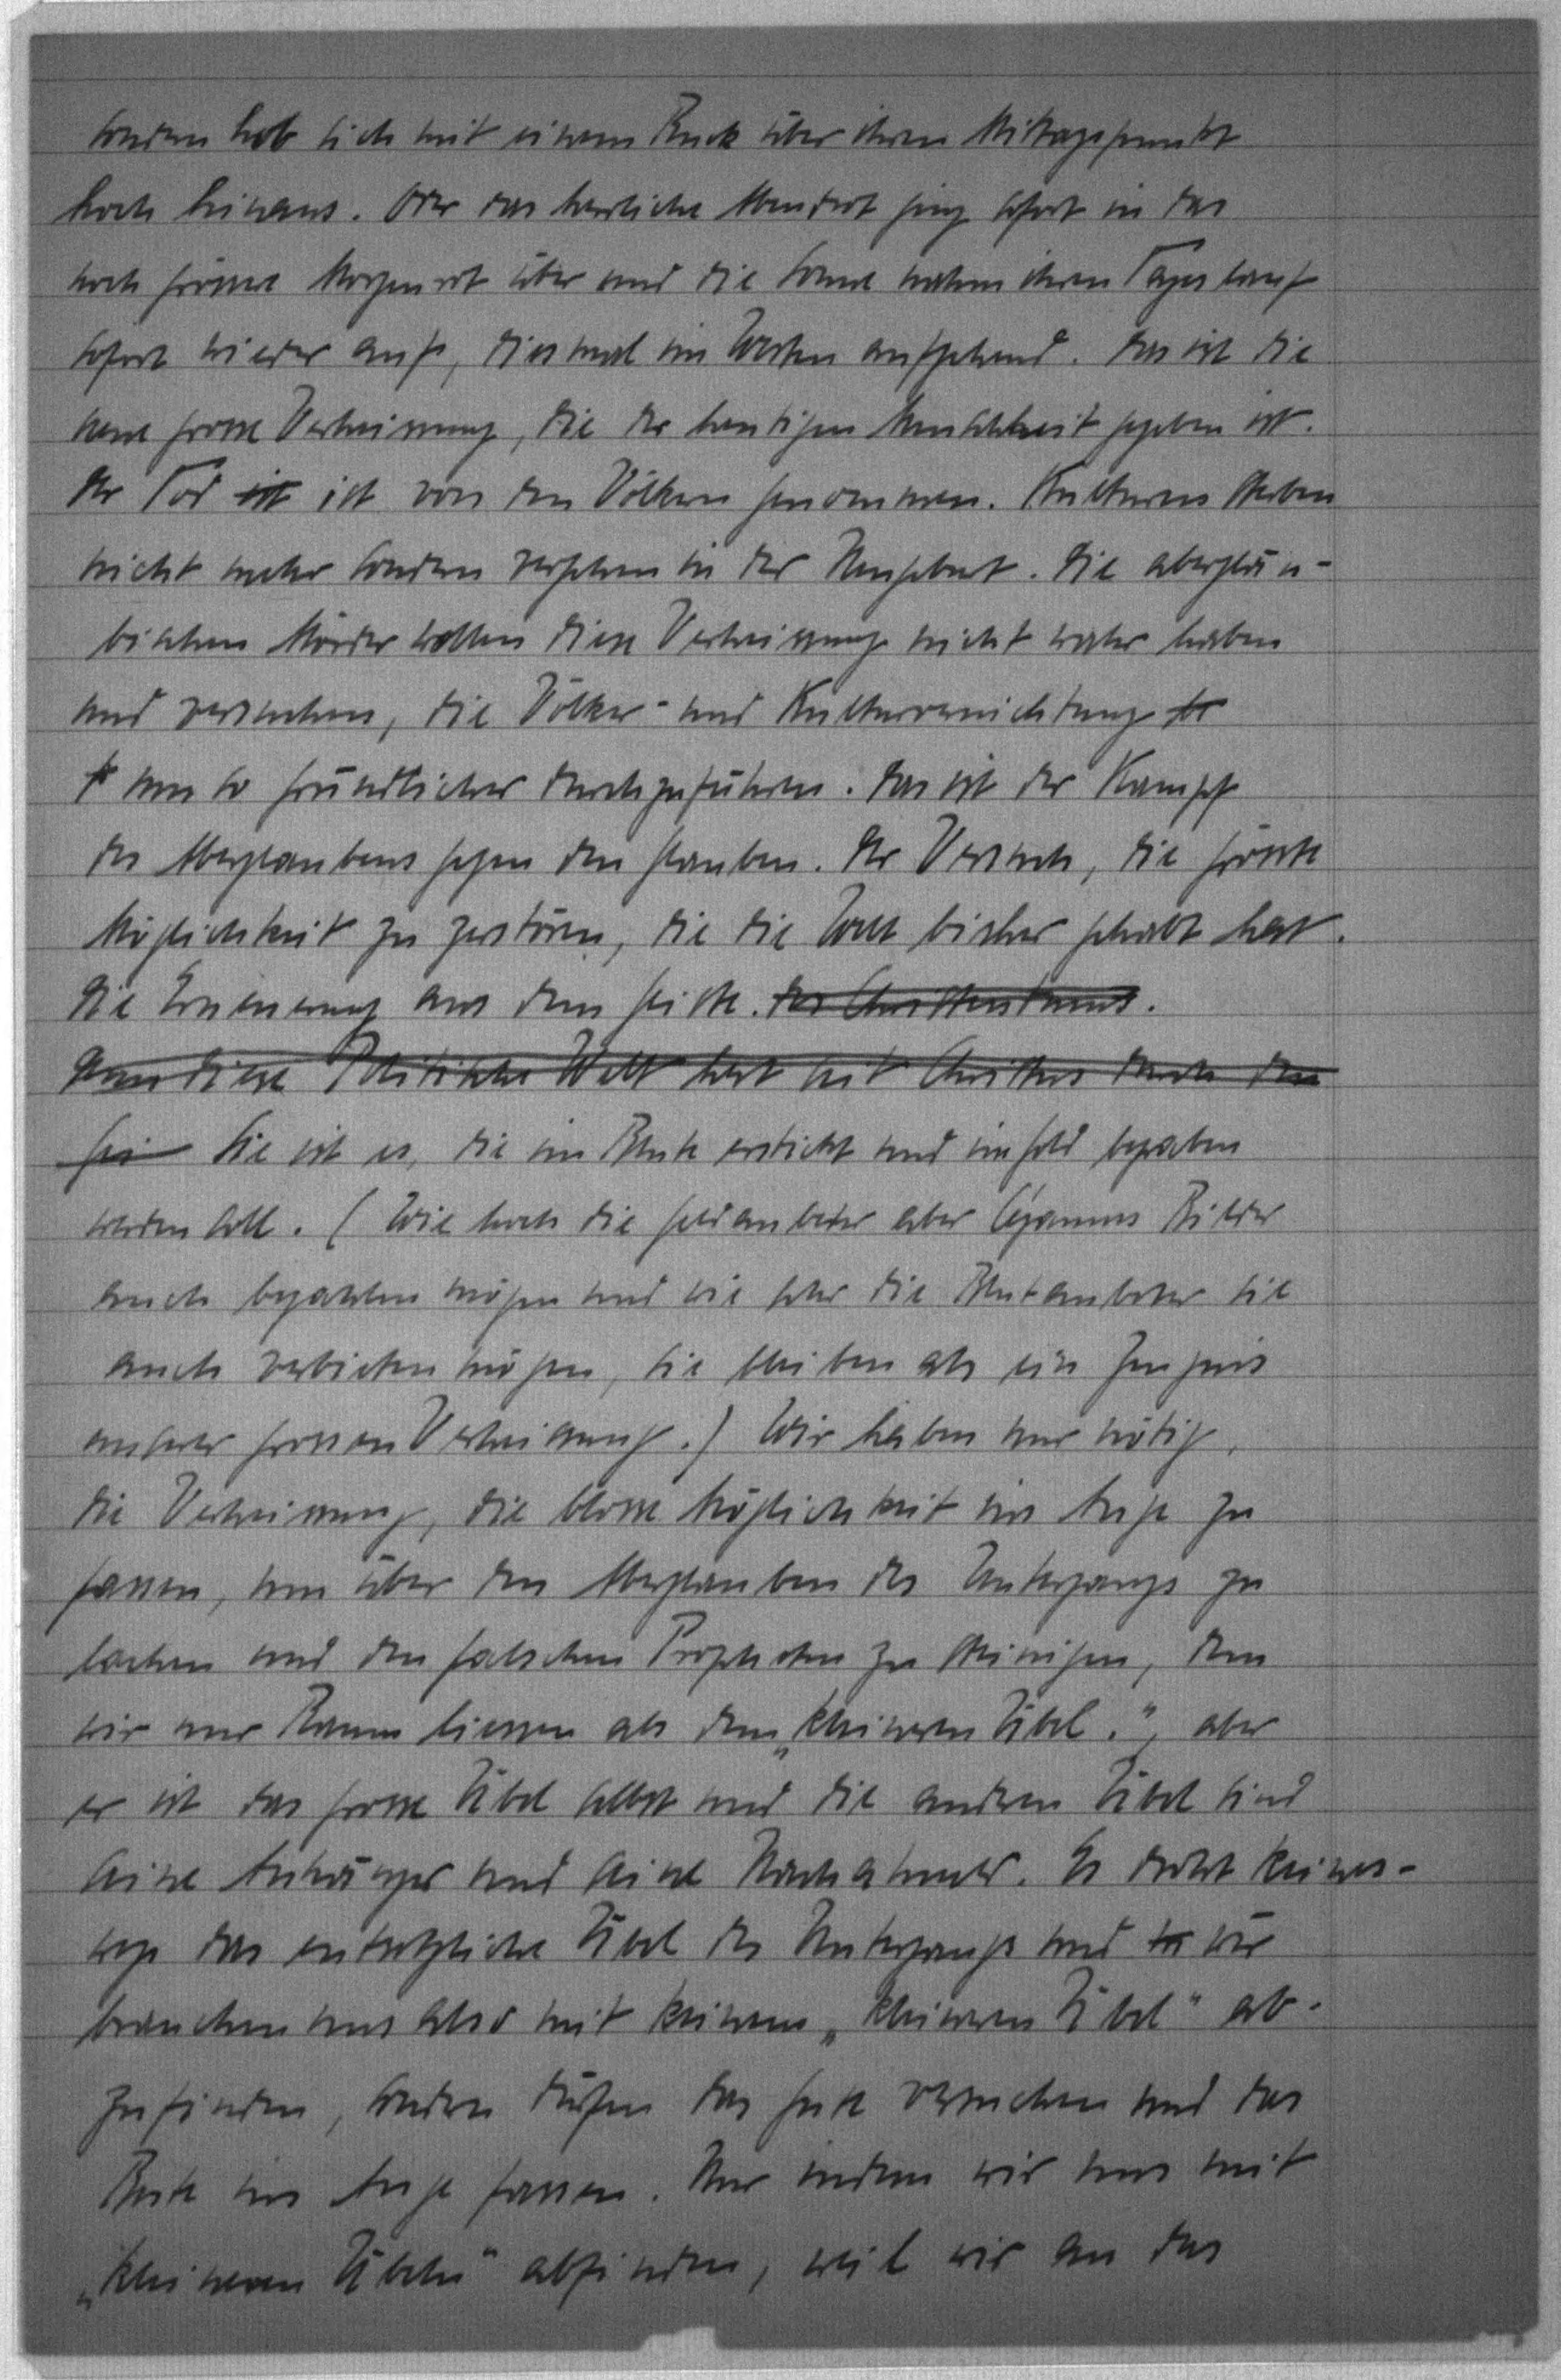 sondern hob sich mit einem Ruck über ihren Mittagspunkt
hoch hinaus. Oder das herrliche Abendrot ging sofort in das
noch grössere Morgenrot über und die Sonne nahm ihren Tageslauf
sofort wieder auf, diesmal im Westen aufgehend. Das ist die
neue grosse Verheissung, die der heutigen Menschheit gegeben ist.
Der Tod ist ist von den Völkern genommen. Kulturen sterben
nicht mehr sondern vergehen in der Neugeburt. Die abergläu-
bischen Mörder wollen diese Verheissung nicht wahr haben
und versuchen, die Völker- und Kulturvernichtung
um so gründlicher durchzuführen. Das ist der Kampf
des Aberglaubens gegen den Glauben. Der Versuch, die grösste
Möglichkeit zu zerstören, die die Welt bisher gehabt hat.
Die Erneuerung aus dem Geiste. des Christentums.
Denn diese Politische Welt hat seit Christus durch den
Gei Sie ist es, die im Blute erstickt und im Gold begraben
werden soll. (Wie hoch die Goldanbeter aber Cézannes Bilder
auch bezahlen mögen und wie sehr die Blutanbeter sie
auch verbieten mögen, sie bleiben als ein Zeugnis
unserer grossen Verheissung.) Wir haben nur nötig,
die Verheissung, die blosse Möglichkeit ins Auge zu
fassen, um über den Aberglauben des Untergangs zu
lachen und den falschen Propheten zu steinigen, dem
wir nur Raum liessen als dem „kleineren Übel.", aber
er ist das grosse Übel selbst und die anderen Übel sind
seine Anhänger und seine Nachahmer. Es droht keines-
wegs das entsetzliche Übel des Untergangs und wir
brauchen uns also mit keinem „kleineren Übel" ab-
zufinden, sondern dürfen das Gute versuchen und das
Beste ins Auge fassen. Nur indem wir uns mit
„kleineren Übeln" abfinden, weil wir an das